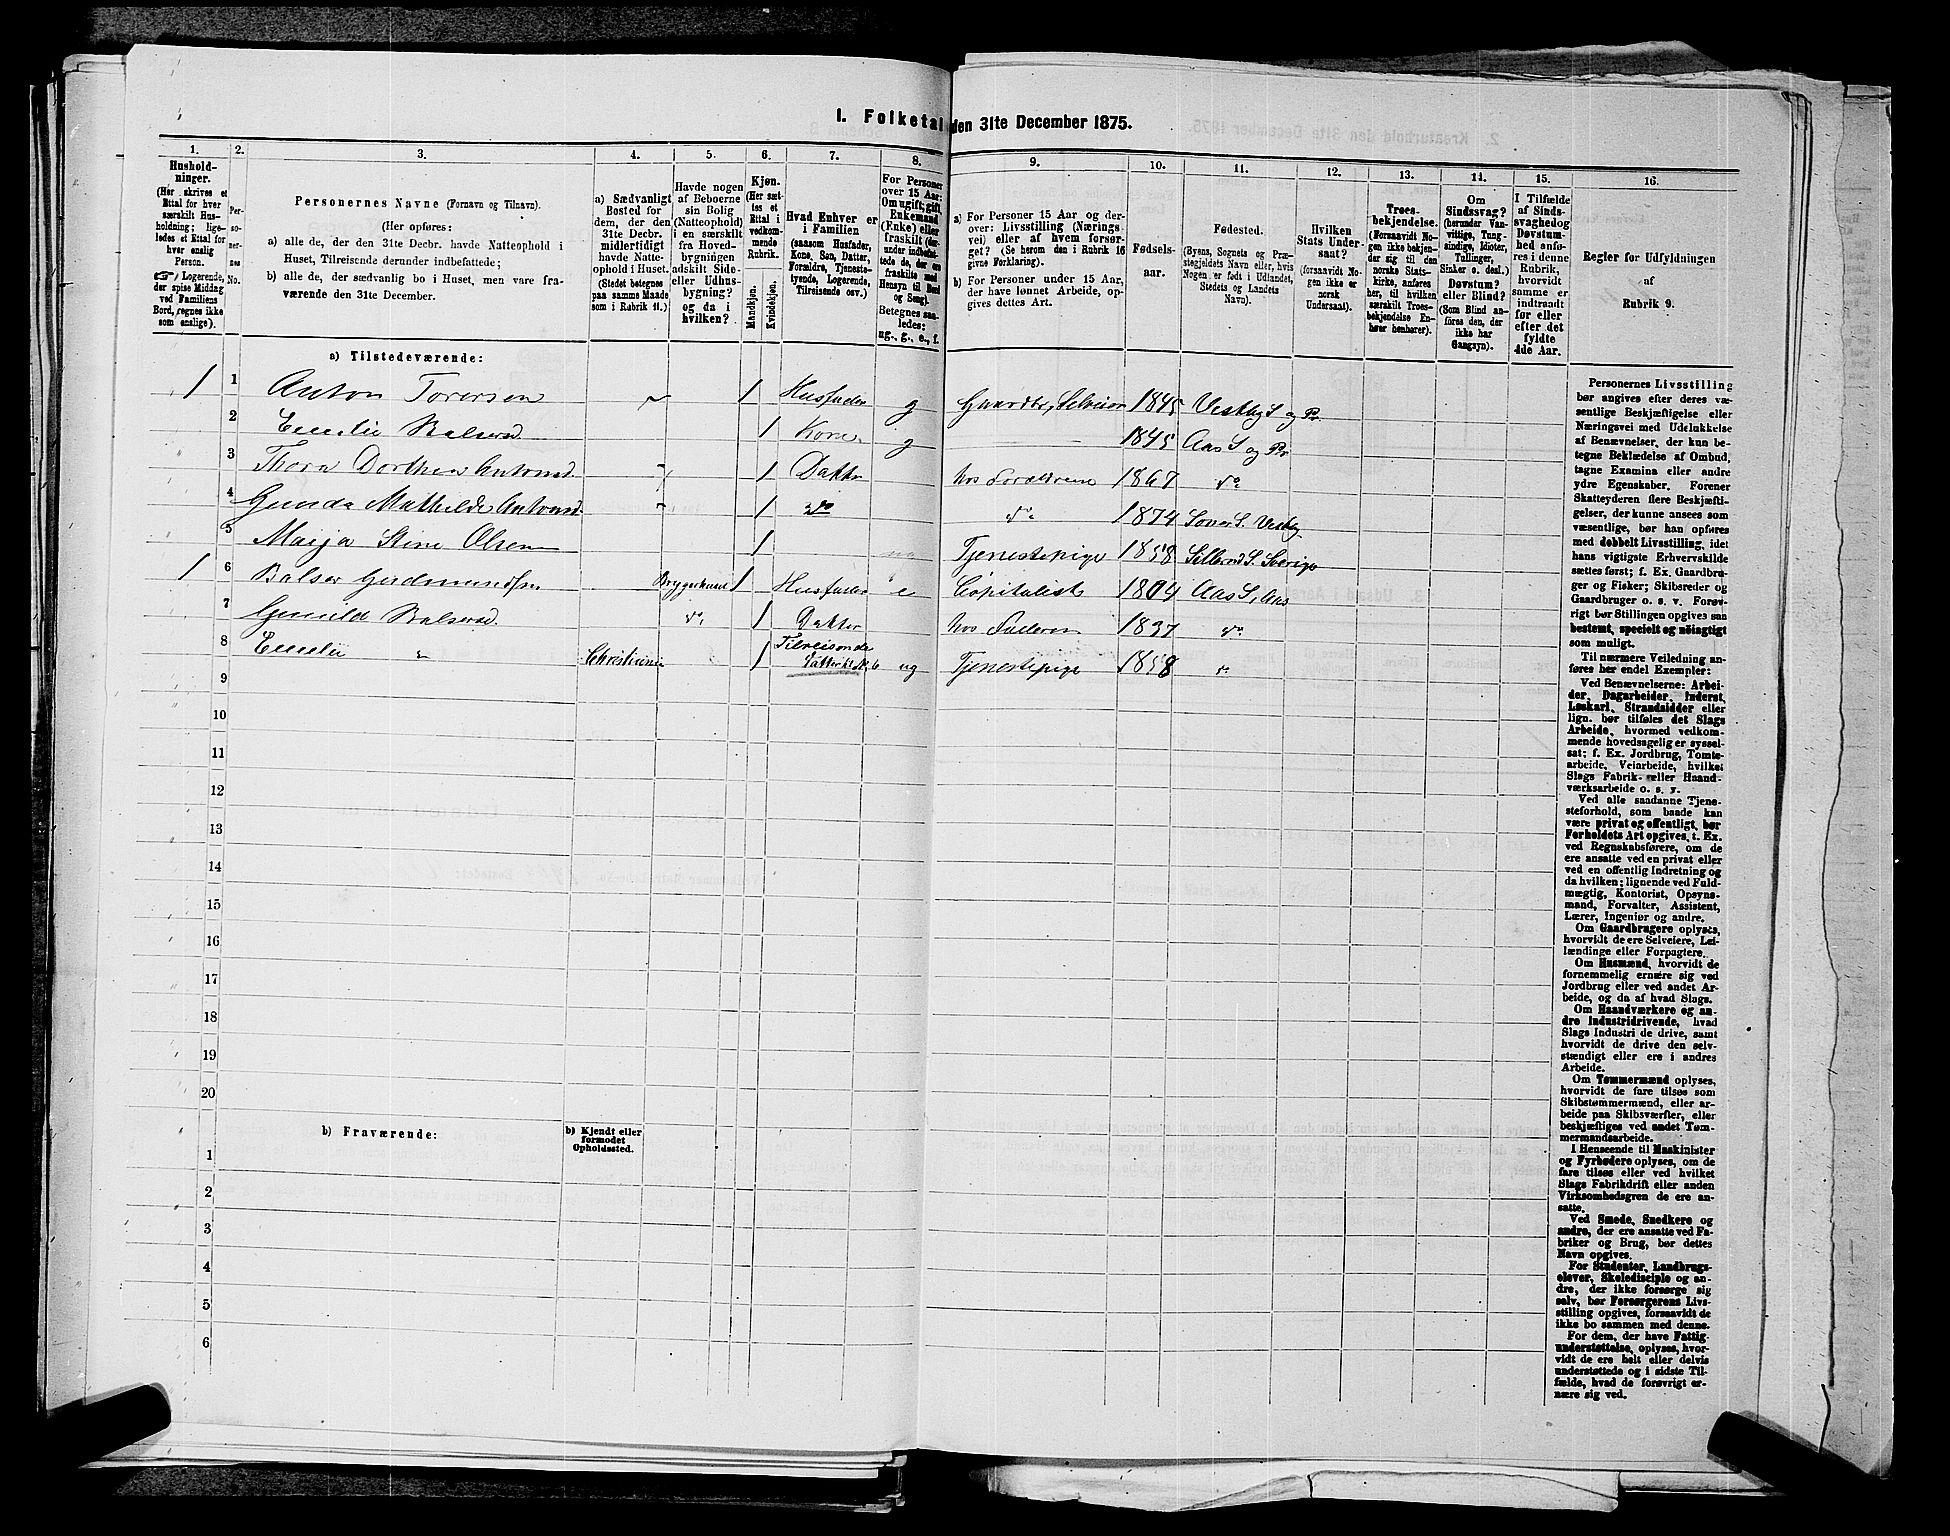 1. Folketal den 31te December 1875.
1. 2. 3. 4. 5. 6. 7. 8. 9. 10. 11. 12. 13. 14. 15. 16.
Hushold-
ninger.
(Her skrives et
Ettal for hver
særskilt Hus-
holdning; lige-
ledes et Ettal for
hver enslig
Person.
Logerende,
der spise Middag
ved Familiens
Bord, regnes ikke
som enslige).
Per-
so-
ner-
nes
No.
Personernes Navne (Fornavn og Tilnavn).
(Her opføres:
a) alle de, der den 31te Decbr. havde Natteophold i
Huset, Tilreisende derunder indbefattede;
b) alle de, der sædvanlig bo i Huset, men vare fra-
værende den 31te December.
a) Sædvanligt
Bosted for
dem, der den
31te Decbr.
midlertidigt
havde Natte-
ophold i Huset.
(Stedet betegnes
paa samme Maade
som i Rubrik 11.)
Havde nogen
af Beboerne
sin Bolig
(Natteophold)
i en særskilt
fra Hoved-
bygningen
adskilt Side-
eller Udhus-
bygning?
og da i
hvilken?
Kjøn.
(Her sæt-
tes et
Ettal i
vedkom-
mende
Rubrik.
Mandkjøn.
Kvindekjøn.
Hvad Enhver er
i Familien
(saasom Husfader,
Kone, Søn, Datter,
Forældre, Tjeneste-
tyende, Logerende,
Tilreisende osv.)
For Personer
over 15 Aar:
Om ugift, gift,
Enkemand
(Enke) eller
fraskilt (der-
under indbefat-
tede de, der ere
fraskilte med
Hensyn til Bord
og Seng).
Betegnes saa-
ledes:
ug., g., e., f.
a) For Personer 15 Aar og der-
over: Livsstilling (Nærings-
vei) eller af hvem forsør-
get? (Se herom den i Rubrik 16
givne Forklaring).
b) For Personer under 15 Aar,
der have lønnet Arbeide, op-
gives dettes Art.
Fødsels-
aar.
Fødested.
(Byens, Sognets og Præ-
stegjeldets Navn eller, hvis
Nogen er født i Udlandet,
Stedets og Landets
Navn).
Hvilken
Stats Under-
saat?
(forsaavidt No-
gen ikke er
norsk
Undersaat).
Troes-
bekjendelse.
(Forsaavidt No-
gen ikke bekjen-
der sig til den
norske Stats-
kirke, anføres
her, til hvilken
særskilt Troes-
bekjendelse En-
hver henhører).
Om
Sindssvag?
(herunder Van-
vittige, Tung-
sindige, Idioter,
Tullinger,
Sinker o. desl.)
Døvstum?
eller Blind?
(Som Blind an-
føres den, der
ikke har
Gangsyn).
I Tilfælde
af Sinds-
svaghed og
Døvstum-
hed anfø-
res i denne
Rubrik,
hvorvidt
samme er
indtraadt
før eller
efter det
fyldte
4de Aar.
Regler for Udfyldningen
af
Rubrik 9.
a) Tilstedeværende:
1 1 Anton Torersen 1 Husfader g Gaardbr, Selveier 1845 Vestby S og Pr
2 Emilie Balserd 1 Kone g 1845 Aas S og Pr
3 Thora Dorthea Antonsd 1 Datter hos Forældrene 1867 do
4 Gunda Mathilde Antonsd 1 do do 1874 Soner S. Vestby
5 Maija Stine Olsen 1 ug Tjenestepige 1858 S. Sverige
1 6 Balser Gudmundsen Bryggerhuset 1 Husfader e Capitalist 1804 Aas S, Aas
7 Gunild Balserd do 1 Datter hos Faderen 1837 do
8 Emilie " Christiania 1 Tilreisende Datter til No 6 ug Tjenestepige 1858 do
9
10
11
12
13
14
15
16
17
18
19
20
b) Fraværende:
b) Kjendt eller
formodet
Opholdssted.
1
2
3
4
5
6
Personernes Livsstilling
bør angives efter deres væ-
sentlige Beskjæftigelse eller
Næringsvei med Udelukkelse
af Benævnelser, der kun be-
tegne Beklædelse af Ombud,
tagne Examina eller andre
ydre Egenskaber. Forener
Skatteyderen flere Beskjæfti-
gelser, der kunne ansees som
væsentlige, bør han opføres
med dobbelt Livsstilling, idet
hans vigtigste Erhvervskilde
sættes først; f. Ex. Gaardbru-
ger og Fisker; Skibsreder og
Gaardbruger o. s. v. Forøv-
rigt bør Stillingen opgives saa
bestemt, specielt og nøiagtigt
som muligt.
Til nærmere Veiledning an-
føres her endel Exempler:
Ved Benævnelserne: Arbei-
der, Dagarbeider, Inderst,
Løskarl, Strandsidder eller
lign. bør tilføies det Slags
Arbeide, hvormed vedkom-
mende hovedsagelig er syssel-
sat; f. Ex. Jordbrug, Tomte-
arbeide, Veiarbeide, hvilket
Slags Fabrik- eller Haand-
værksarbeide o. s. v.
Ved alle saadanne Tjene-
steforhold, som baade kan
være privat og offentligt, bør
Forholdets Art opgives, t. Ex.
ved Regnskabsførere, om de
ere ansatte ved en privat eller
ved en offentlig Indretning og
da hvilken; lignende ved Fuld-
mægtig, Kontorist, Opsyns-
mand, Forvalter, Assistent,
Lærer, Ingeniør og andre.
Om Gaardbrugere oplyses,
hvorvidt de ere Selveiere, Lei-
lændinge eller Forpagtere.
Om Husmænd, hvorvidt de
fornemmelig ernære sig ved
Jordbrug eller ved andet Ar-
beide, og da af hvad Slags.
Om Haandværkere og an-
dre Industridrivende, hvad
Slags Industri de drive, samt
hvorvidt de drive den selv-
stændigt eller ere i andres
Arbeide.
Om Tømmermænd oplyses,
hvorvidt de fare tilsøs som
Skibstømmermænd, eller ar-
beide paa Skibsværfter, eller
beskjæftiges ved andet Tøm-
mermandsarbeide.
I Henseende til Maskinister
og Fyrbødere oplyses, om de
fare tilsøs eller ved hvilket
Slags Fabrikdrift eller anden
Virksomhedsgren de ere an-
satte.
Ved Smede, Snedkere og
andre, der ere ansatte ved Fa-
briker og Brug, bør dettes
Navn opgives.
For Studenter, Landbrugs-
elever, Skoledisciple og an-
dre, der ikke forsørge sig
selv, bør Forsørgerens Livs-
stilling opgives, forsaavidt de
ikke bo sammen med denne.
For dem, der have Fattig-
understøttelse, oplyses, hvor-
vidt de ere helt eller delvis
understøttede og i sidste Til-
fælde, hvad de forøvrigt er-
nære sig ved.